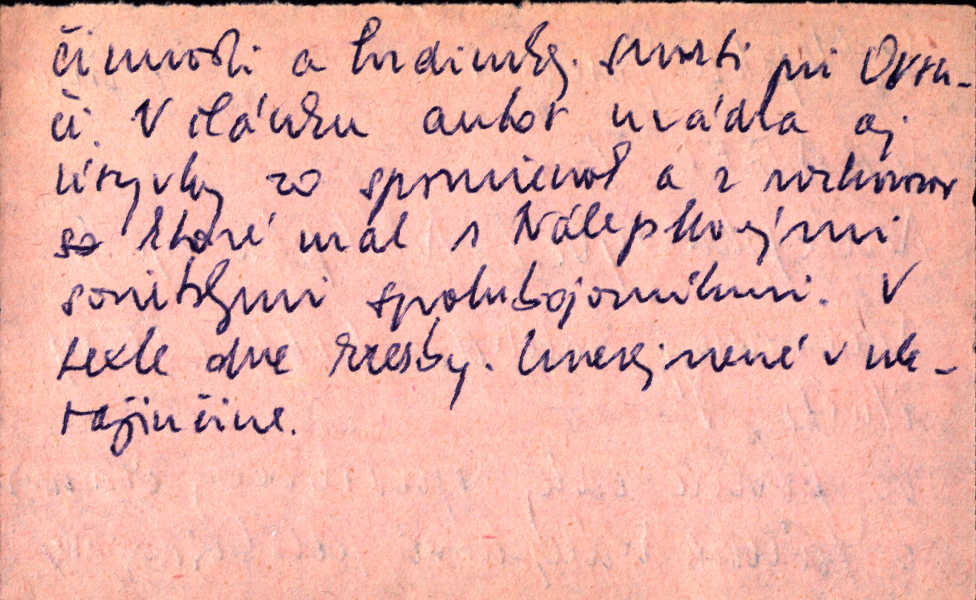 činnosti a hrdinskej smrti pri Ovru-
či. V článku autor uvádza aj
úryvky zo spomienok a z rozhovorov
ktoré mal s Nálepkovými
sovietskymi spolubojovníkmi. V
texte dve kresby. Uverejnené v uk-
rajinčine.